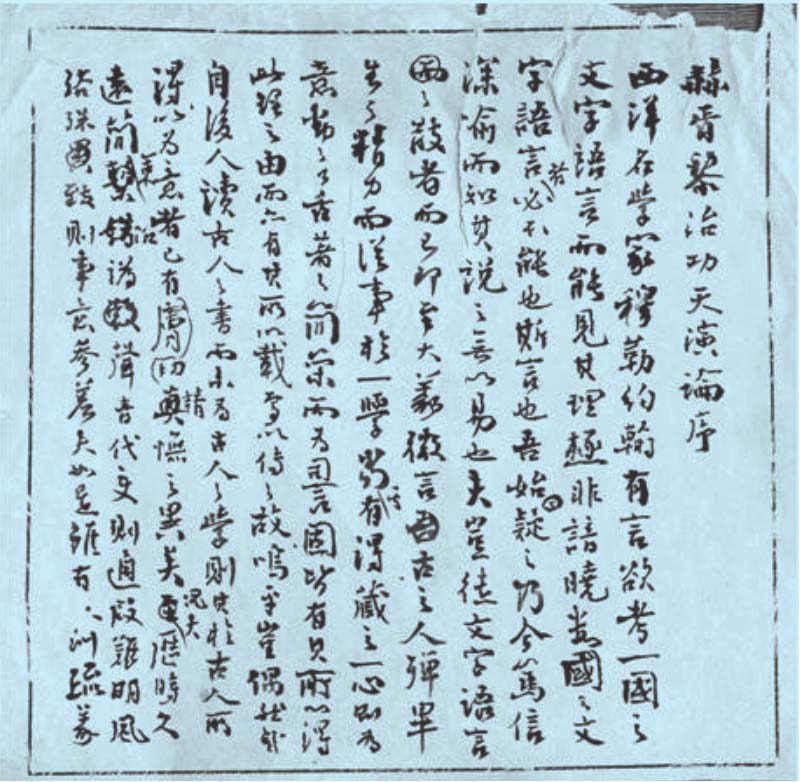 赫胥黎治功天演論序
西洋名學家穆勒約翰有言欲考一國之
文字語言而能見其理極非諳曉數國之文
字語言者必不能也斯言也吾始疑之乃今篤信
深喻而知其說之無以易也夫豈徒文字語言
之散者而已即至大義微言古之人殫畢
生之精力而從事於一學當有得藏之一心則為
意動之口舌著之簡策而為言固皆有其所以得
此理之由而亦有其所以載焉以傳之故嗚乎豈偶然哉
自後人讀古人之書而未為古人之學則其於古人所
得以為意者已有膚切精憮之異矣況夫歷時久
遠簡策沿訛聲音代變則通叚難明風
俗殊致則事意參差夫如是雖有訓疏義